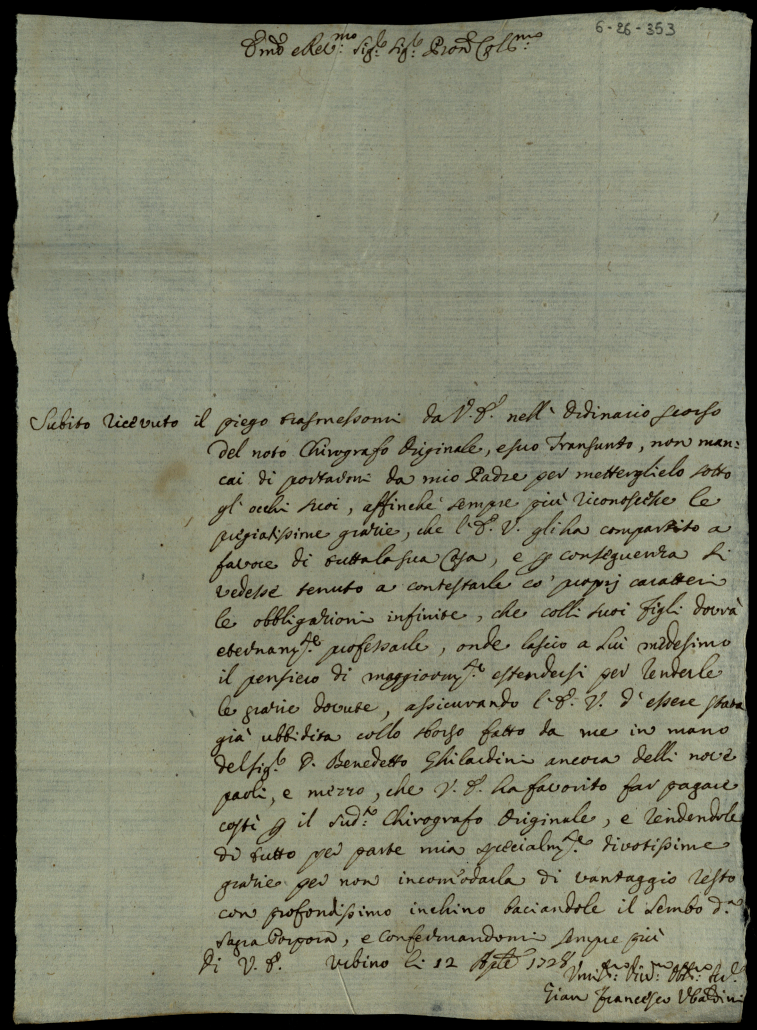 6-26-353
Em.o e Rev.mo Sig.r Sig.r Pron Col.mo
Subito ricevuto il piego trasmessomi da V. E. nell' Ordinario scorso
del noto Chirografo Originale, e suo Transunto, non man=
cai di portarmi da mio Padre per metterglielo sotto
gl' occhi suoi, affinche sempre più riconoscesse le
pregiatissime grazie, che l' E. V. gli ha compartito a
favore di tutta la sua Casa, e p conseguenza si
vedesse tenuto a contestarle co' proprj caratteri
le obbligazioni infinite, che colli suoi Figli dovrà
eternam.te professarle, onde lascio a Lui medesimo
il pensiero di maggiorm.te estendersi per renderle
le grazie dovute, assicurando l' E. V. d' essere stata
già ubbidita collo sborso fatto da me in mano
del Sig.r D. Benedetto Ghilardini ancora delli nove
paoli, e mezzo, che V. E. ha favorito far pagare
costì p il sud.o Chirografo Originale, e rendendole
di tutto per parte mia specialm.te divotissime
grazie per non incomodarla di vantaggio resto
con profondissimo inchino baciandole il Lembo d.a
Sagra Porpora, e confermandomi sempre più
Di V. E. Urbino li 12 Aple 1728
Umil.mo Div.mo Obb.mo
Gian Francesco Ubaldini